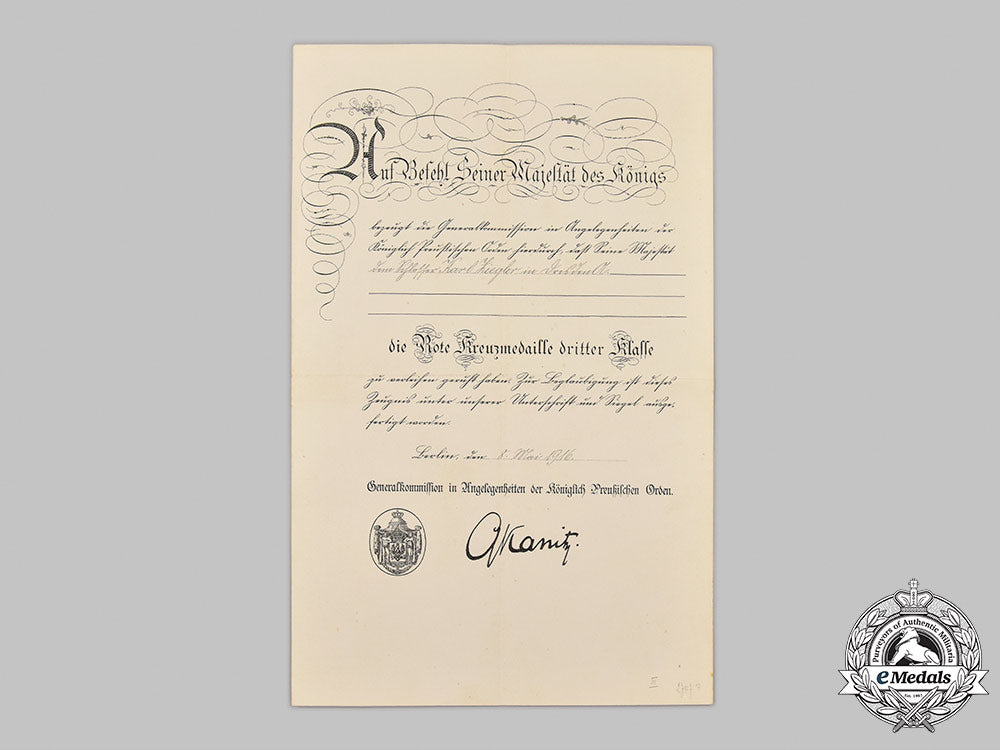 Auf Befehl Seiner Majestät des Königs
bezeugt die Generalkommission in Angelegenheiten der
Königlich Preußischen Orden hierdurch, daß Seine Majestät
dem Schlosser Karl Ziegler in Dresden A.
die Rote Kreuzmedaille dritter Klasse
zu verleihen geruht haben. Zur Beglaubigung ist dieses
Zeugnis unter unserer Unterschrift und Siegel ausge-
fertigt worden.
Berlin, den 8. Mai 1916.
Generalkommission in Angelegenheiten der Königlich Preußischen Orden.
Kanitz.
II
Purveyors of Authentic Militaria
eMedals
Est. 1967